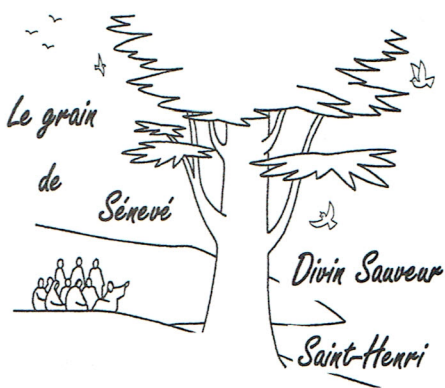 Le grain
de
Sénevé
Divin Sauveur
Saint-Henri